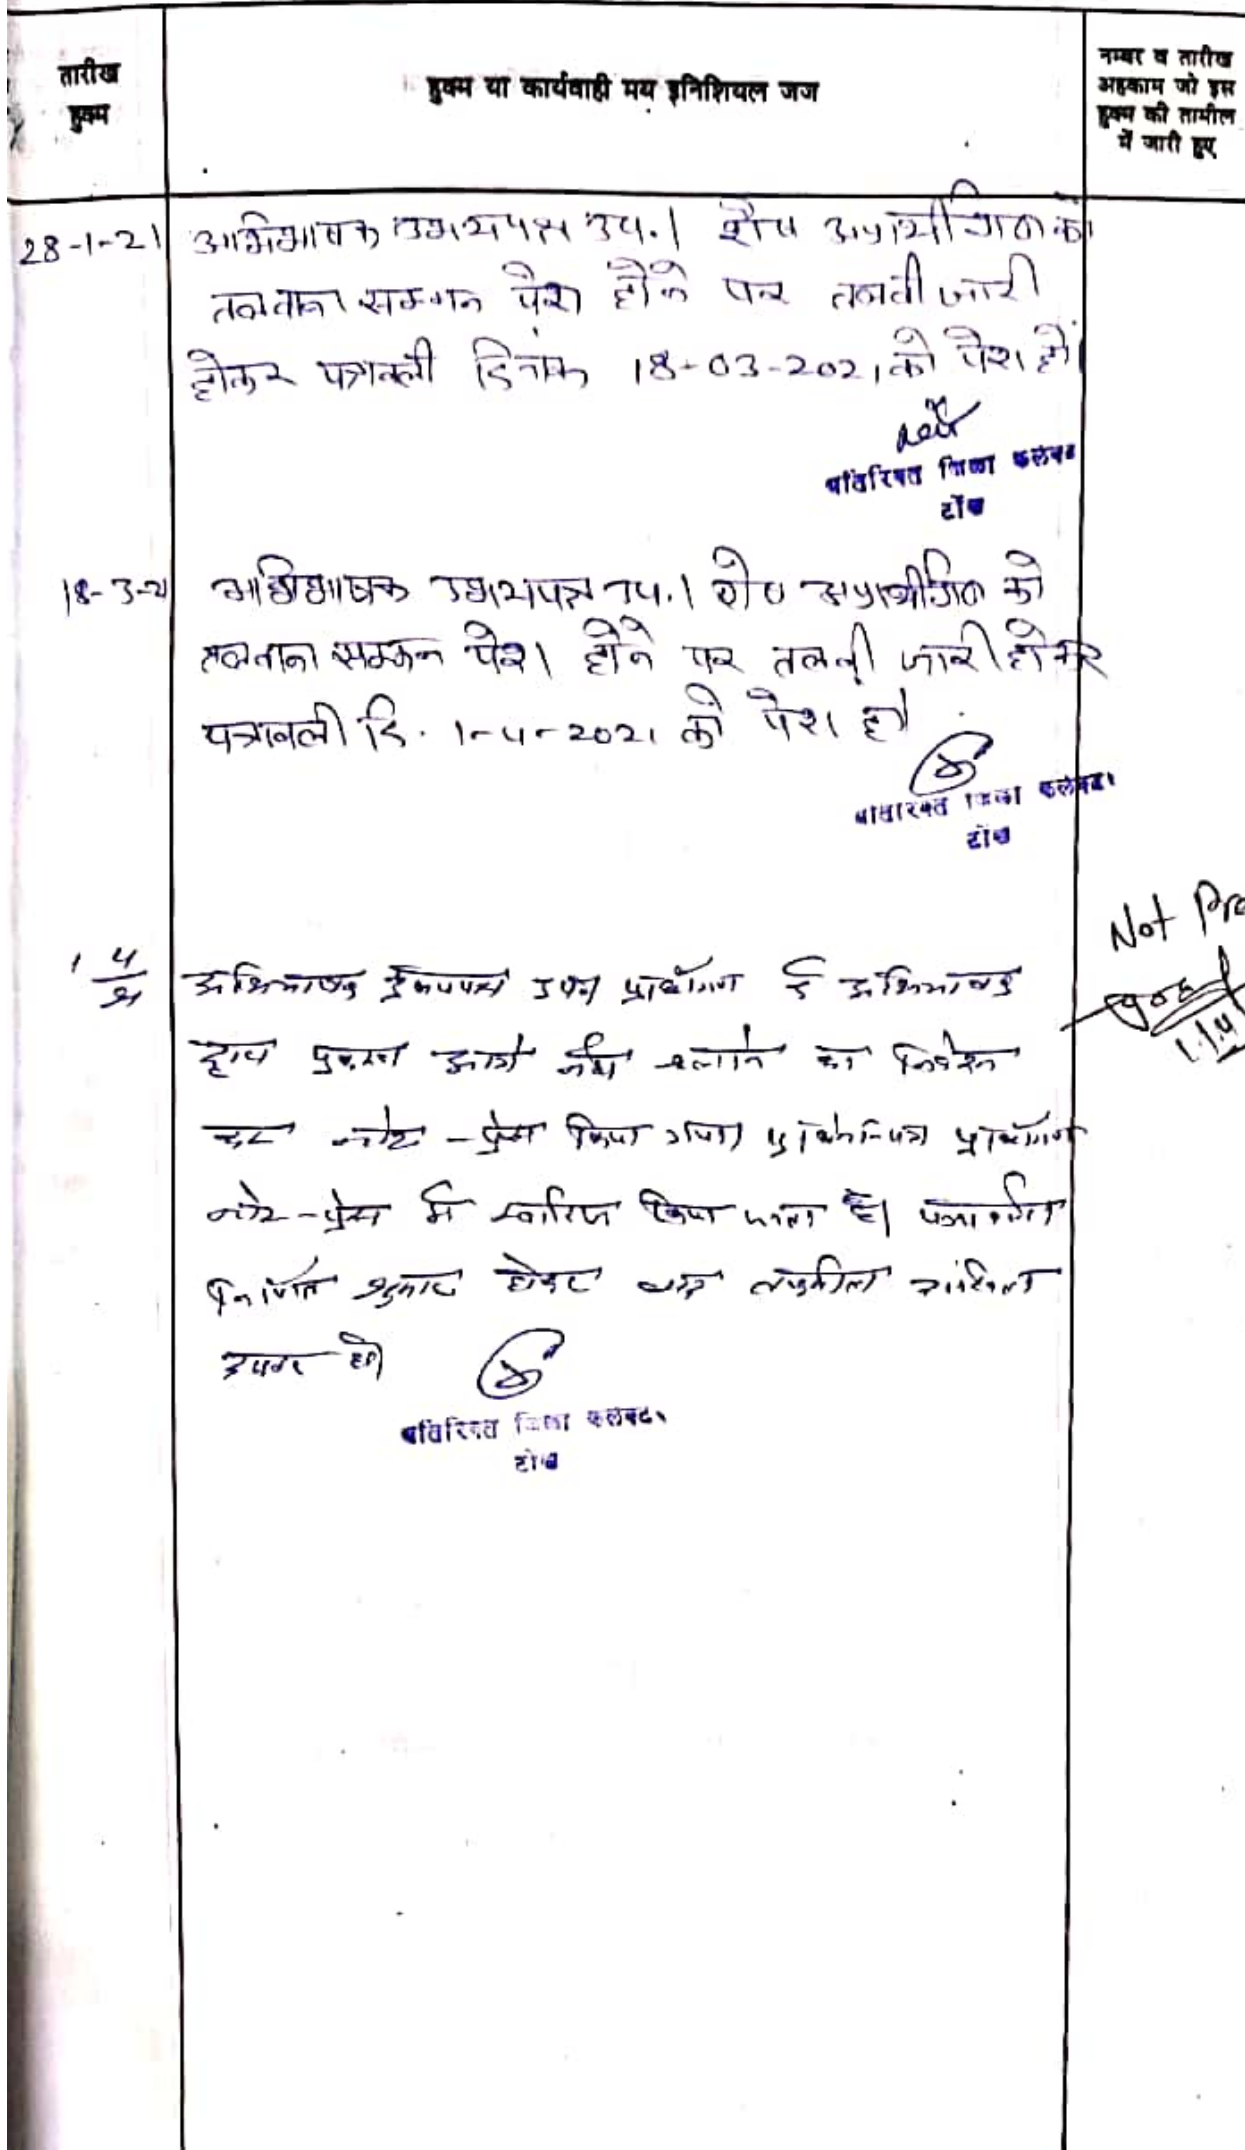 तारीख
हुक्म
हुक्म या कार्यवाही मय इनिशियल जज
नम्बर व तारीख
अहकाम जो इस
हुक्म की तामील
में जारी हुए
28-1-21
अभिभाषक उभयपक्ष उप.। शेष अप्रार्थीगण को
तलवाना सम्मन पेश होने पर तलबी जारी
होकर पत्रावली दिनांक 18-03-2021 को पेश हो।
अतिरिक्त जिला कलेक्टर
टोंक
18-3-21
अभिभाषक उभयपक्ष उप.। शेष अप्रार्थीगण को
तलवाना सम्मन पेश होने पर तलबी जारी होकर
पत्रावली दि. 1-4-2021 को पेश हो
अतिरिक्त जिला कलेक्टर
टोंक
Not Pre
1 4/21
अभिभाषक उभयपक्ष उप० प्रार्थीगण के अभिभाषक
द्वारा प्रकरण आगे नहीं चलाने का निवेदन
कर नोट-प्रेस किया गया। प्रार्थना-पत्र प्रार्थीगण
नोट-प्रेस में खारिज किया जाता है। पत्रावली
निर्णित शुमार होकर बाद तकमील दाखिल
दफ्तर हो
अतिरिक्त जिला कलेक्टर
टोंक